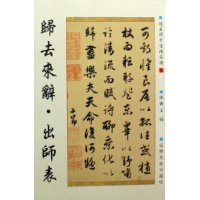 可期懷良辰以孤往或植
杖而耘耔登東皋以舒嘯
臨清流而賦詩聊乘化以
歸盡樂夫天命復何疑
子昂
歸去來辭·出師表